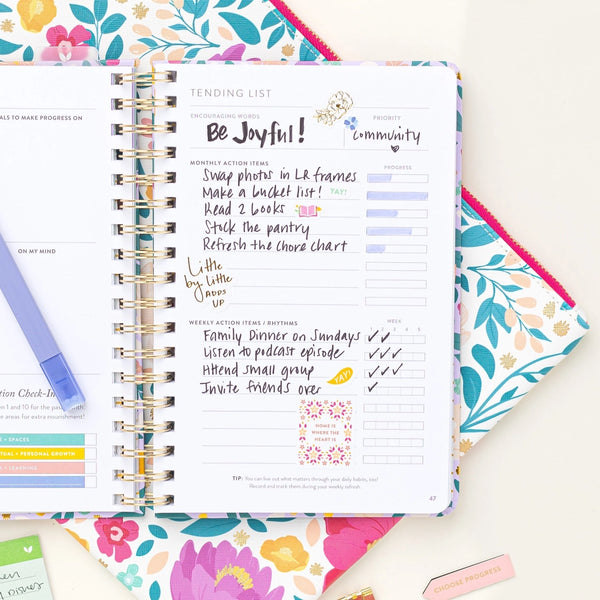 ALS TO MAKE PROGRESS ON
ON MY MIND
tion Check-In
on 1 and 10 for the past
e areas for extra nourishment!
+ SPACES
TUAL + PERSONAL GROWTH
K + LEARNING
TENDING LIST
ENCOURAGING WORDS
Be Joyful!
PRIORITY
community
MONTHLY ACTION ITEMS
PROGRESS
Swap photos in LR frames
Make a bucket list! YAY!
Read 2 books
Stock the pantry
Refresh the chore chart
Little
by little
ADDS
UP
WEEKLY ACTION ITEMS / RHYTHMS
WEEK
1 2 3 4 5
Family Dinner on Sundays
Listen to podcast episode
Attend small group
YAY!
Invite friends over
HOME IS
WHERE THE
HEART IS
TIP: You can live out what matters through your daily habits, too!
Record and track them during your weekly refresh.
47
CHOOSE PROGRESS